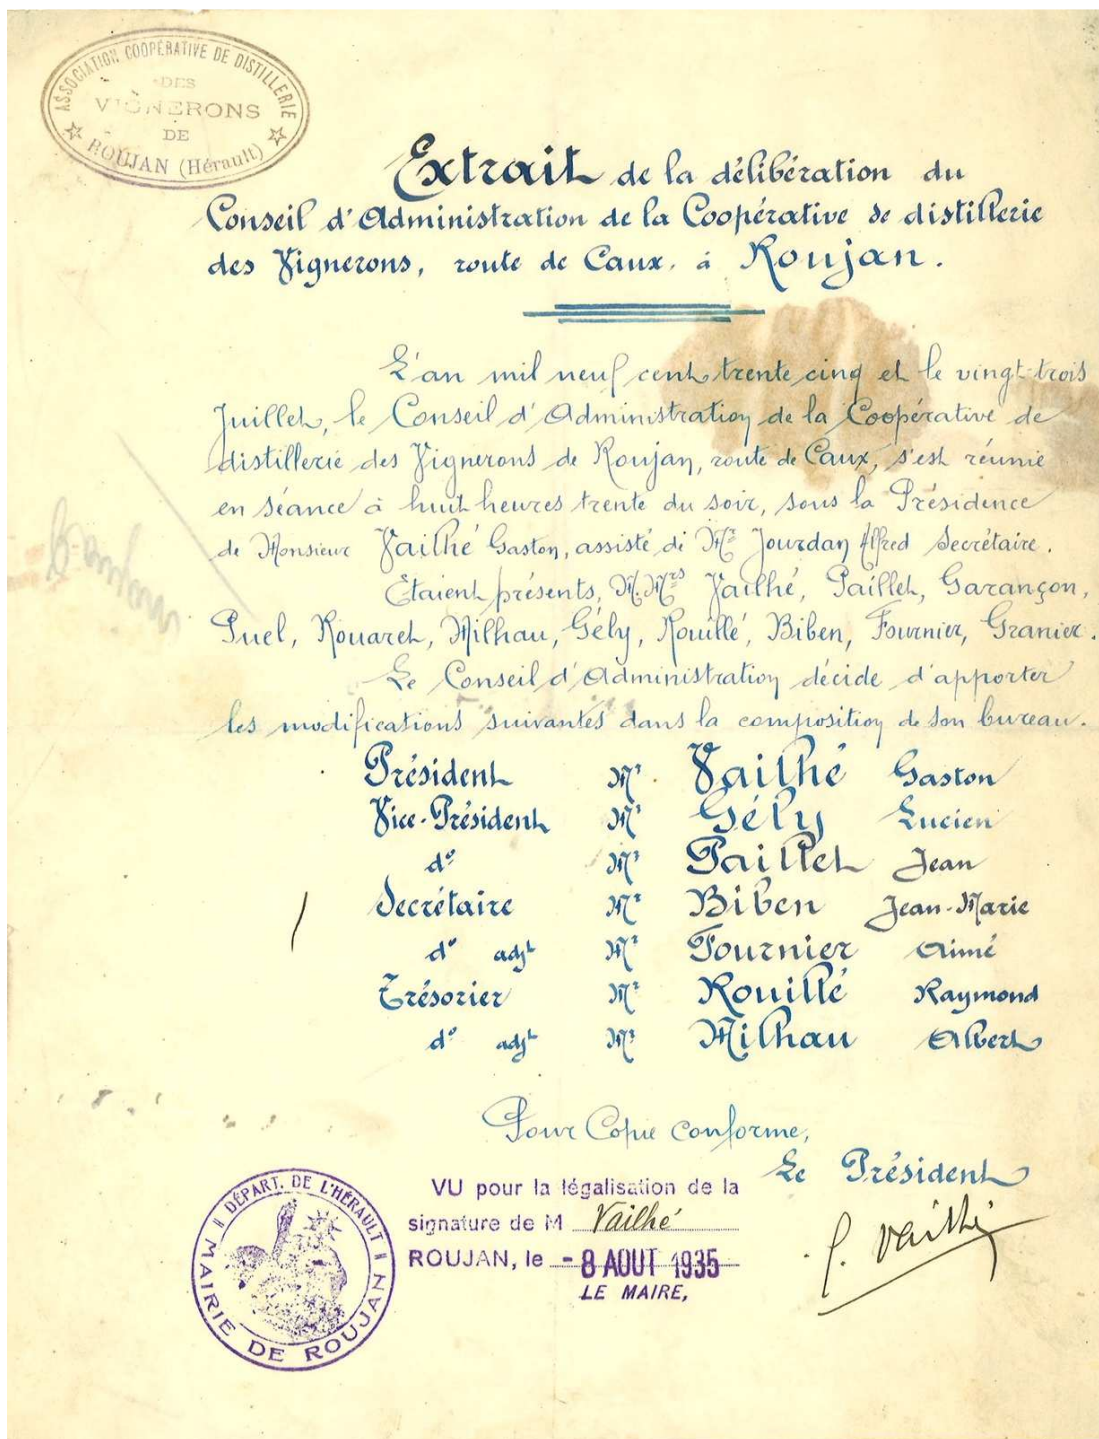 ASSOCIATION COOPÉRATIVE DE DISTILLERIE
DES
VIGNERONS
DE
ROUJAN (Hérault)
Extrait de la délibération du
Conseil d'Administration de la Coopérative de distillerie
des Vignerons, route de Caux, à Roujan.
L'an mil neuf cent trente cinq et le vingt-trois
Juillet, le Conseil d'Administration de la Coopérative de
distillerie des Vignerons de Roujan, route de Caux, s'est réunie
en séance à huit heures trente du soir, sous la Présidence
de Monsieur Vailhé Gaston, assisté de Mr Jourdan Alfred Secrétaire.
Etaient présents, M.Mrs Vailhé, Paillet, Garançon,
Puel, Rouaret, Milhau, Gély, Rouillé, Biben, Fournier, Granier.
Le Conseil d'Administration décide d'apporter
les modifications suivantes dans la composition de son bureau.
Président Mr Vailhé Gaston
Vice-Président Mr Gély Lucien
do Mr Paillet Jean
Secrétaire Mr Biben Jean-Marie
do adjt Mr Fournier Aimé
Trésorier Mr Rouillé Raymond
do adjt Mr Milhau Albert
Pour Copie conforme,
Le Président
VU pour la légalisation de la
signature de M Vailhé
ROUJAN, le - 8 AOUT 1935
LE MAIRE,
G. Vailhé
DÉPART. DE L'HÉRAULT
MAIRIE DE ROUJAN